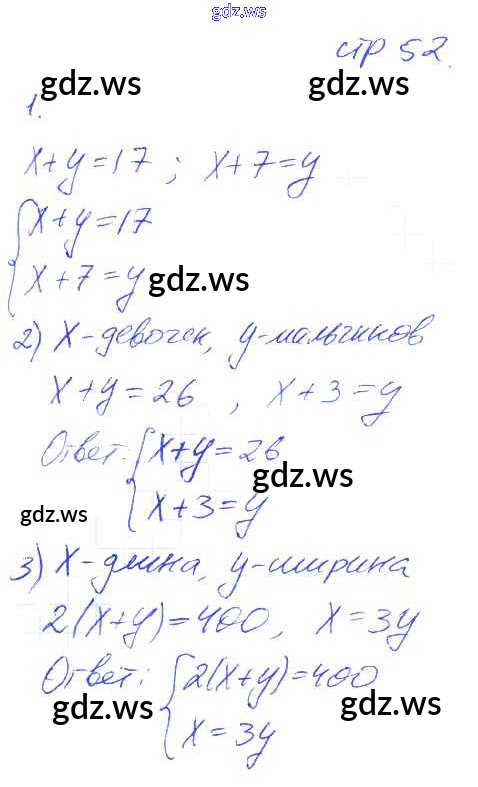 gdz.ws
стр 52.
gdz.ws gdz.ws
1.
x+y=17 ; x+7=y
{x+y=17
x+7=y gdz.ws
2) x-девочек, y-мальчиков
x+y=26 , x+3=y
Ответ: {x+y=26
gdz.ws
x+3=y
gdz.ws
3) x-длина, y-ширина
2(x+y)=400, x=3y
Ответ: {2(x+y)=400
gdz.ws gdz.ws
x=3y